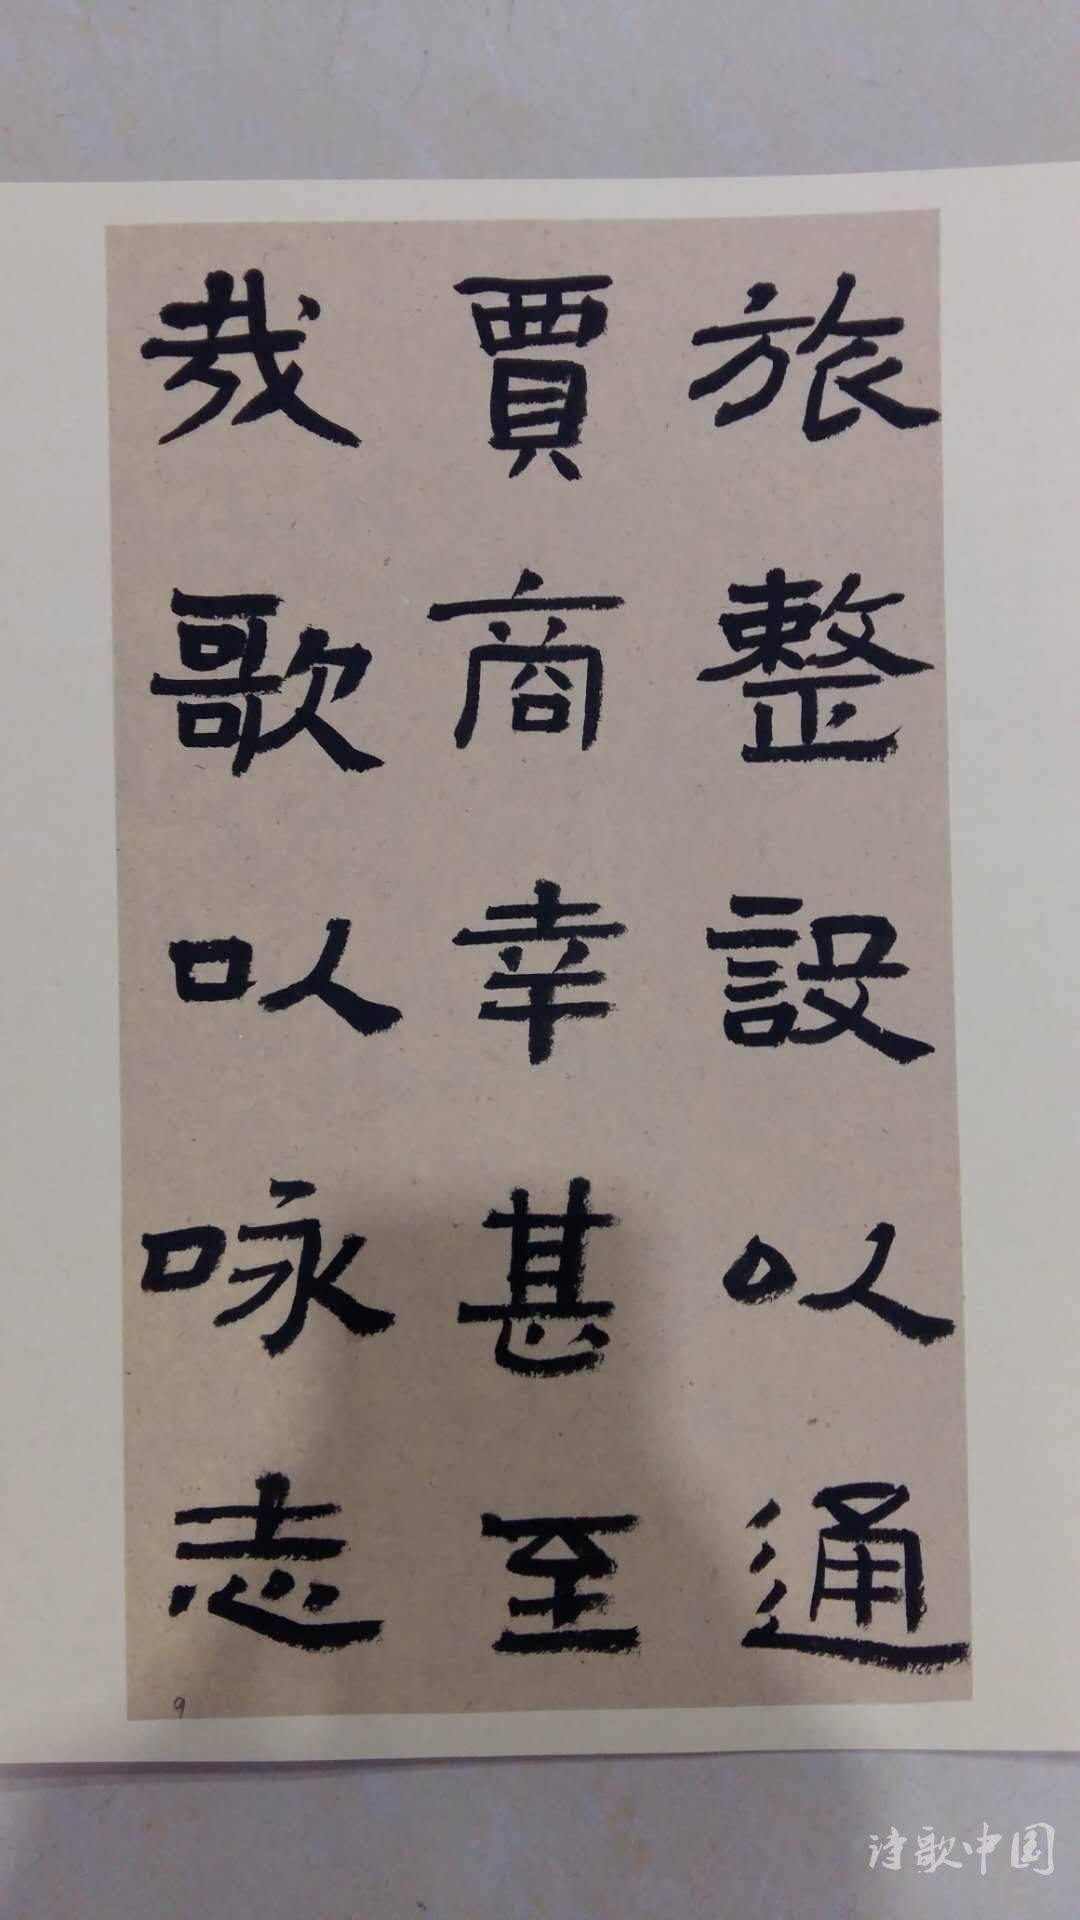 旅整設以通
賈商幸甚至
哉歌以咏志
9
诗歌中国